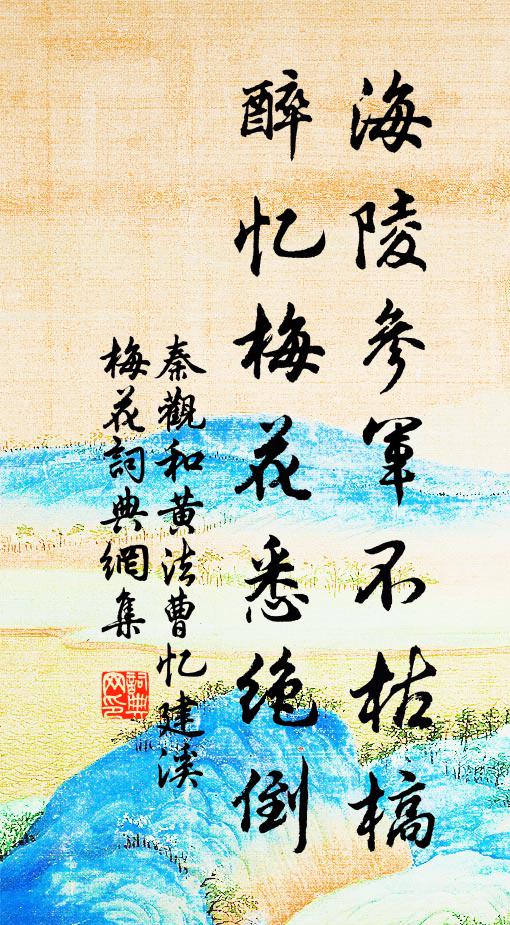 海陵参軍不枯槁
醉忆梅花悉绝倒
秦觀和黄法曹忆建溪
梅花詞典網集
詞典网印